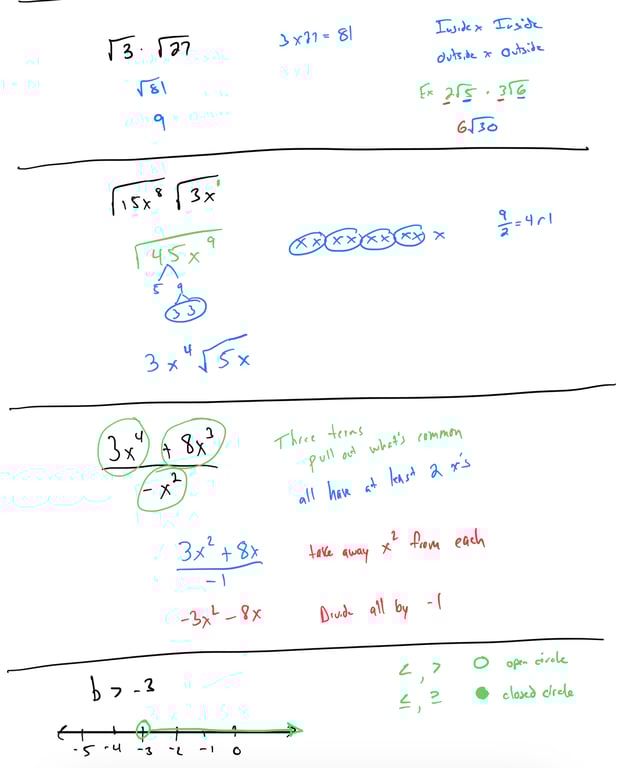 √3 · √27
3 x 27 = 81
Inside x Inside
outside x outside
√81
Ex 2√5 · 3√6
9
6√30
√15x⁸ √3x
√45x⁹
xx xx xx xx x
9/2 = 4 r 1
5 9
3 3
3x⁴√5x
3x⁴ + 8x³
- x²
Three terms
pull out what's common
all have at least 2 x's
3x² + 8x
-1
take away x² from each
-3x² - 8x
Divide all by -1
b > -3
<, > ○ open circle
≤, ≥ ● closed circle
-5 -4 -3 -2 -1 0